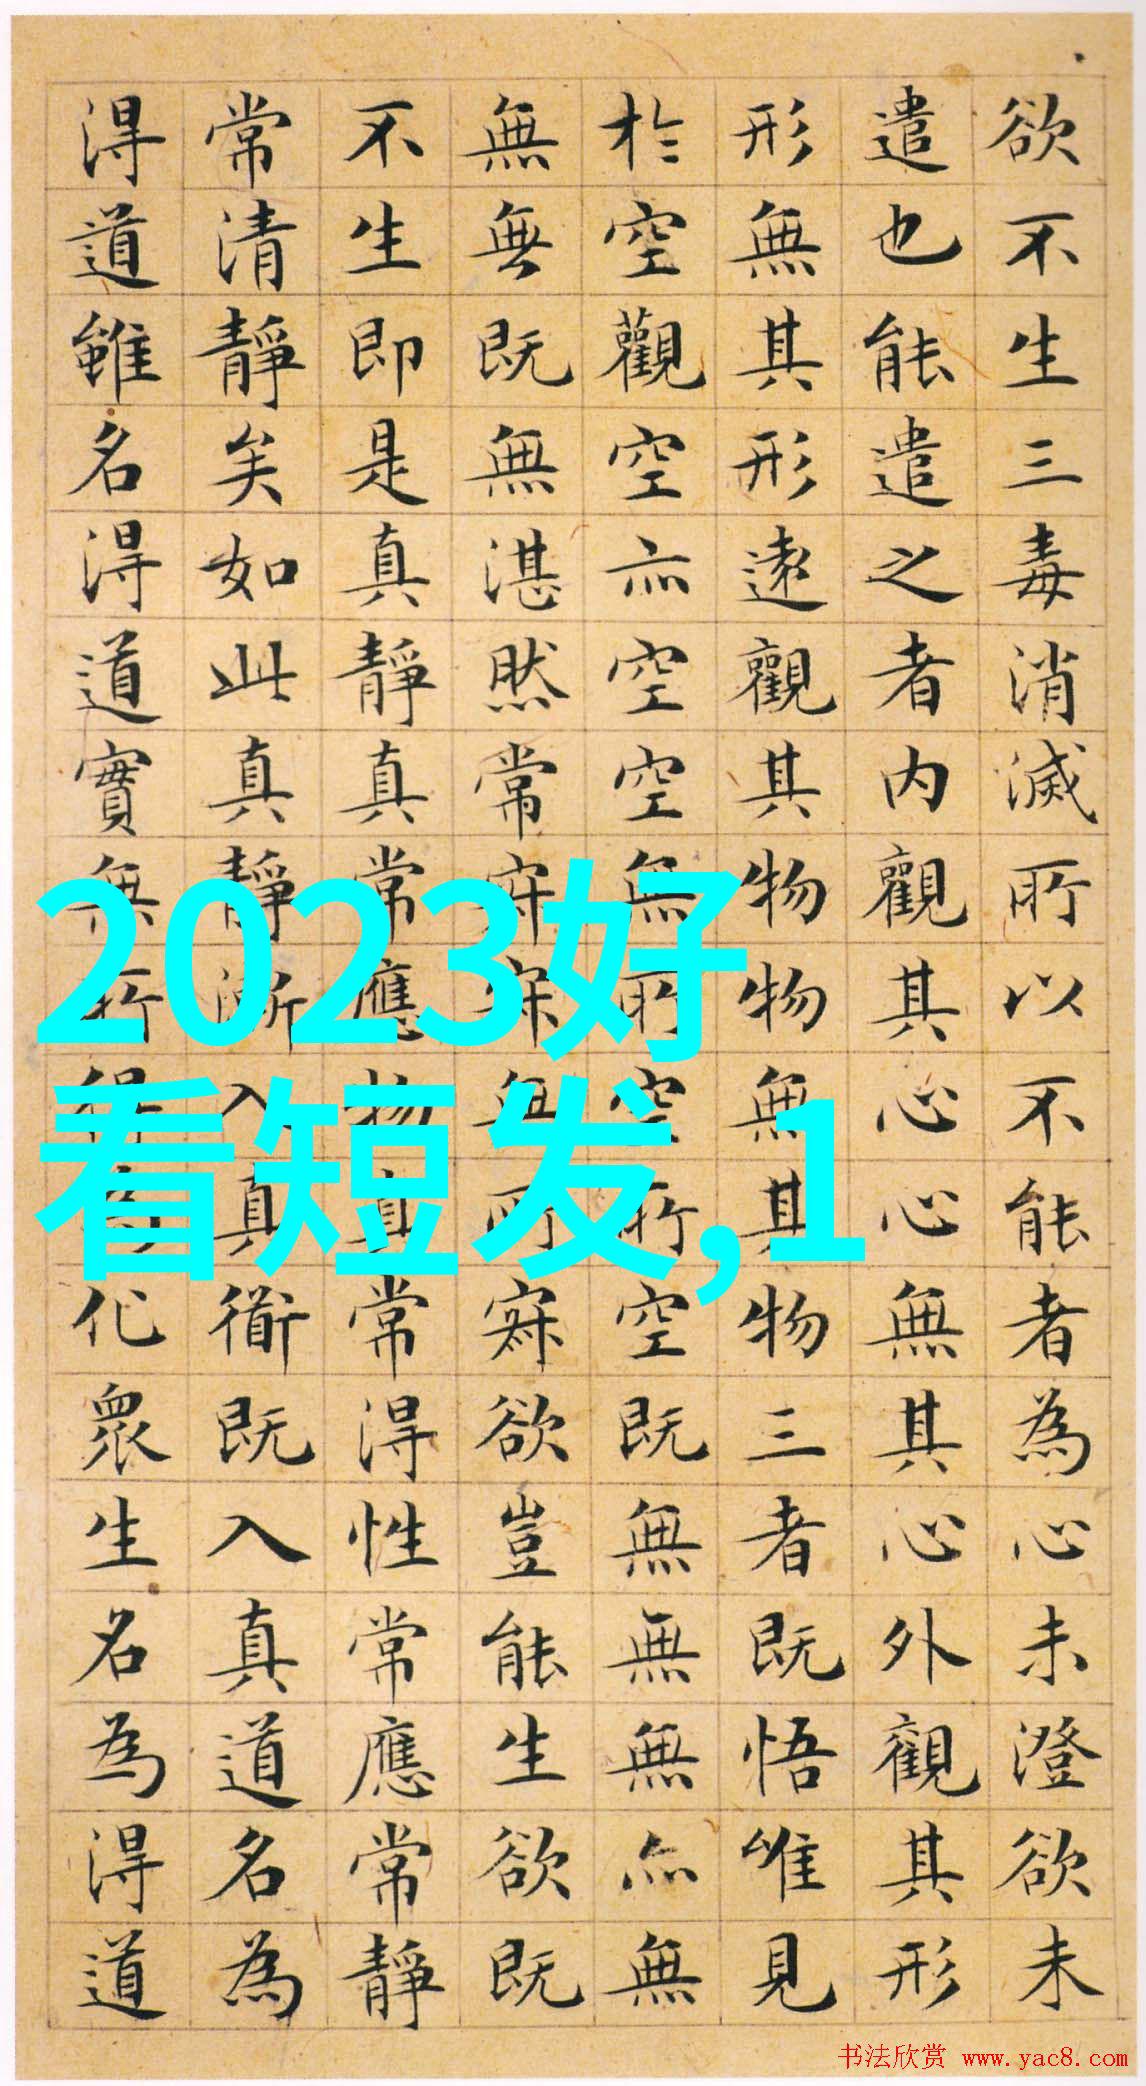 欲不生三毒消滅所以不能者為心未澄欲未
遣也能遣之者内觀其心心無其心外觀其形
形無其形遠觀其物物無其物三者既悟唯見
於空觀空亦空空無所空所空既無無無亦無
無無既無湛然常寂寂無所寂欲豈能生欲既
不生即是真靜真常應物真常得性常應常靜
常清靜矣如此真靜漸入真衜既入真道名為
得道雖名得道實無所得為化眾生名為得道
2023好
看短发,1
书法欣赏 www.yac8.com